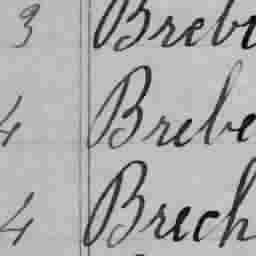 3 Brebe
4 Brebe
4 Brech